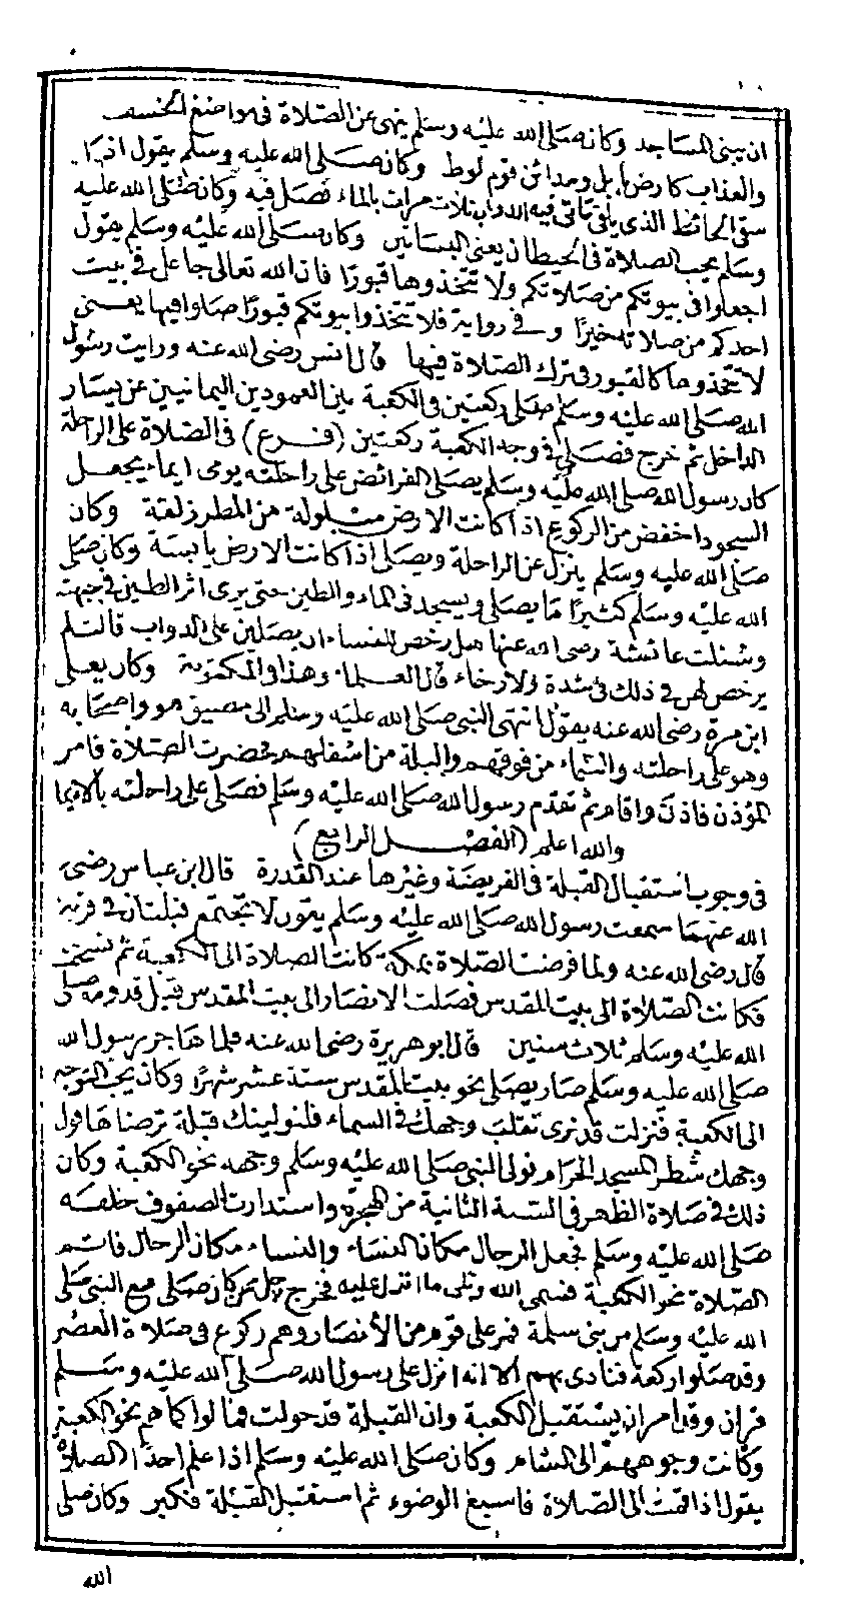 ان يبنى المساجد وكان صلى الله عليه وسلم ينهى عن الصلاة في مواضع الخسف
والعذاب كارض بابل ومدائن قوم لوط وكان صلى الله عليه وسلم يقول اذا
سقى الحائط الذى يلقى فيه الدواب ثلاث مرات بالماء فصل فيه وكان صلى الله عليه
وسلم يحب الصلاة في الحيطان يعنى البساتين وكان صلى الله عليه وسلم يقول
اجعلوا في بيوتكم من صلاتكم ولا تتخذوها قبورا فان الله تعالى جاعل في بيت
احدكم من صلاته خيرا وفي رواية فلا تتخذوا بيوتكم قبورا صلوا فيها يعنى
لا تتخذوها كالقبور في ترك الصلاة فيها قال انس رضى الله عنه ورايت رسول
الله صلى الله عليه وسلم صلى ركعتين في الكعبة بين العمودين اليمانيين عن يسار
الداخل ثم خرج فصلى في وجه الكعبة ركعتين (فرع) في الصلاة على الراحلة
كان رسول الله صلى الله عليه وسلم يصلى الفرائض على راحلته يومى ايماء يجعل
السجود اخفض من الركوع اذا كانت الارض مبلولة من المطر زلقة وكان
صلى الله عليه وسلم ينزل عن الراحلة ويصلى اذا كانت الارض يابسة وكان صلى
الله عليه وسلم كثيرا ما يصلى ويسجد في الماء والطين حتى يرى اثر الطين في جبهته
وسئلت عائشة رضى الله عنها هل رخص للنساء ان يصلين على الدواب قالت لم
يرخص لهن في ذلك في شدة ولا رخاء قال العلماء وهذا في المكتوبة وكان يعلى
ابن مرة رضى الله عنه يقول انتهى النبى صلى الله عليه وسلم الى مضيق هو واصحابه
وهو على راحلته والسماء من فوقهم والبلة من اسفلهم فحضرت الصلاة فامر
المؤذن فاذن واقام ثم تقدم رسول الله صلى الله عليه وسلم فصلى على راحلته بالايما
والله اعلم (الفصل الرابع)
في وجوب استقبال القبلة في الفريضة وغيرها عند القدرة قال ابن عباس رضى
الله عنهما سمعت رسول الله صلى الله عليه وسلم يقول لا تجتمع قبلتان في قرية
قال رضى الله عنه ولما فرضت الصلاة بمكة كانت الصلاة الى الكعبة ثم نسخت
فكانت الصلاة الى بيت المقدس فصلت الانصار الى بيت المقدس قبل قدومه صلى
الله عليه وسلم ثلاث سنين قال ابو هريرة رضى الله عنه فلما هاجر رسول الله
صلى الله عليه وسلم صار يصلى نحو بيت المقدس ستة عشر شهرا وكان يحب التوجه
الى الكعبة فنزلت قد نرى تقلب وجهك في السماء فلنولينك قبلة ترضاها فول
وجهك شطر المسجد الحرام فولى النبى صلى الله عليه وسلم وجهه نحو الكعبة وكان
ذلك في صلاة الظهر في السنة الثانية من الهجرة واستدارت الصفوف خلفه
صلى الله عليه وسلم فجعل الرجال مكان النساء والنساء مكان الرجال فاتم
الصلاة نحو الكعبة فسمى الله وتلى ما انزل عليه فخرج رجل ممن كان صلى مع النبى صلى
الله عليه وسلم من بنى سلمة فمر على قوم من الأنصار وهم ركوع في صلاة العصر
وقد صلوا ركعة فنادى بهم الا انه انزل على رسول الله صلى الله عليه وسلم
قران وقد امر ان يستقبل الكعبة وان القبلة قد حولت فمالوا كما هم نحو الكعبة
وكانت وجوههم الى الشام وكان صلى الله عليه وسلم اذا علم احدا الصلاة
يقول اذا قمت الى الصلاة فاسبغ الوضوء ثم استقبل القبلة فكبر وكان صلى
الله